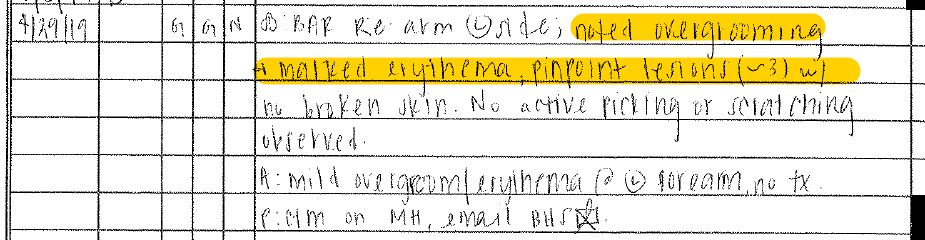 4/29/19 G G N O: BAR Re: arm Ⓛ side; noted overgrooming
+ marked erythema, pinpoint lesions (~3) w/
no broken skin. No active picking or scratching
observed.
A: mild overgroom/erythema @ Ⓛ forearm, no tx.
P: CTM on MH, email BHS